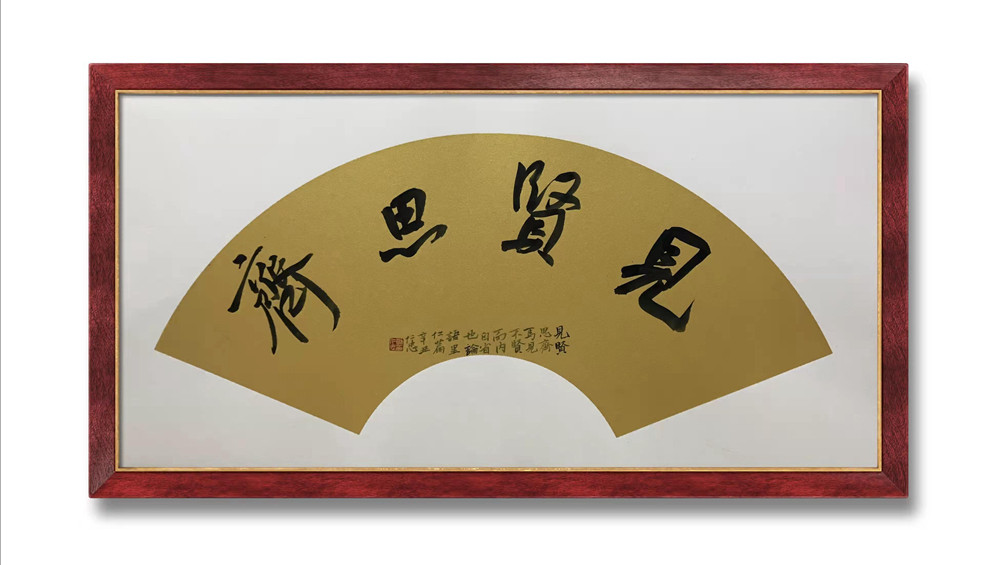 見賢思齊
見賢
思齊
焉見
不賢
而内
自省
也論
語里
仁篇
辛丑